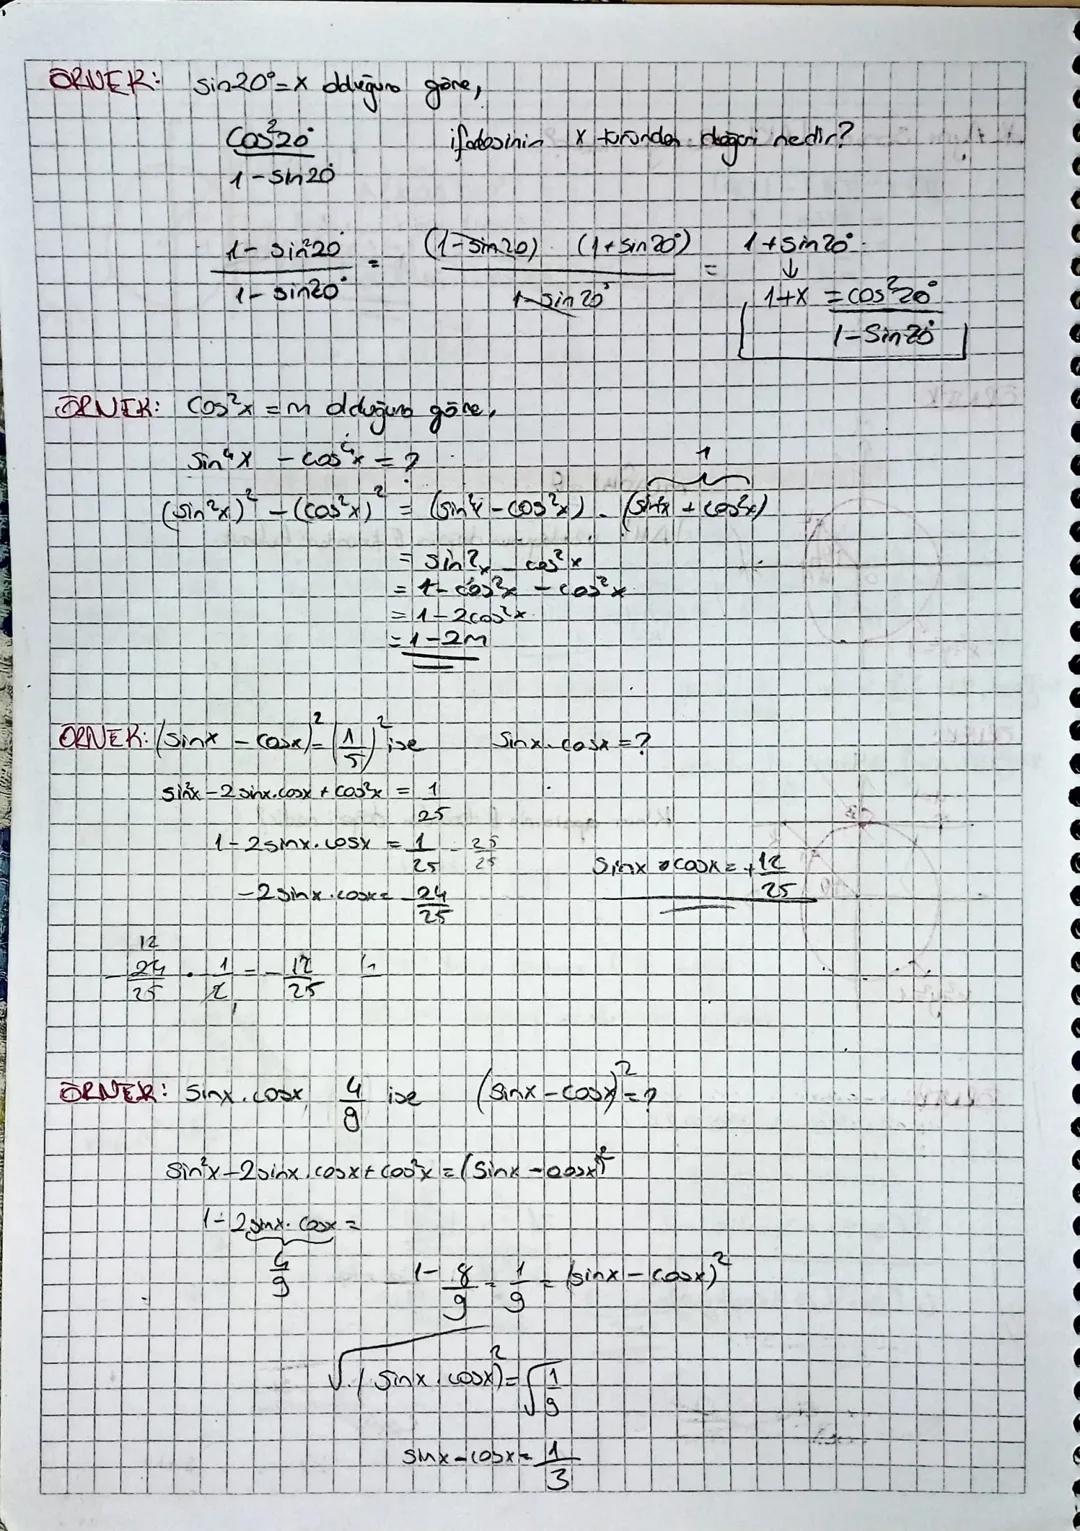 ÖRNEK: sin20°=x olduğuna göre,
cos²20°
ifadesinin x türünden değeri nedir?
1-sin20°
1-sin²20° = (1-sin20). (1+sin20°) = 1+sin20°
1-sin20° 1-sin20° ↓
1+x = cos²20°
1-sin20°
ÖRNEK: cos²x = m olduğuna göre,
sin⁴x - cos⁴x = ?
1
(sin²x)² - (cos²x)² = (sin²x - cos²x) . (sin²x + cos²x)
= sin²x - cos²x
= 1-cos²x - cos²x
= 1-2cos²x
= 1-2m
ÖRNEK: (sinx - cosx)² = (1/5)² ise sinx.cosx=?
sin²x-2sinx.cosx+cos²x = 1/25
1-2sinx.cosx = 1/25 - 25/25
-2sinx.cosx = -24/25
sinx.cosx = +12/25
12
-24/25 . 1/2 = -12/25
1
ÖRNEK: sinx.cosx 4/9 ise (sinx-cosx)²=?
sin²x-2sinx.cosx+cos²x = (sinx-cosx)²
1-2sinx.cosx =
4/9
1-8/9 = 1/9 = (sinx-cosx)²
√(sinx.cosx)² = √1/9
sinx-cosx = 1/3